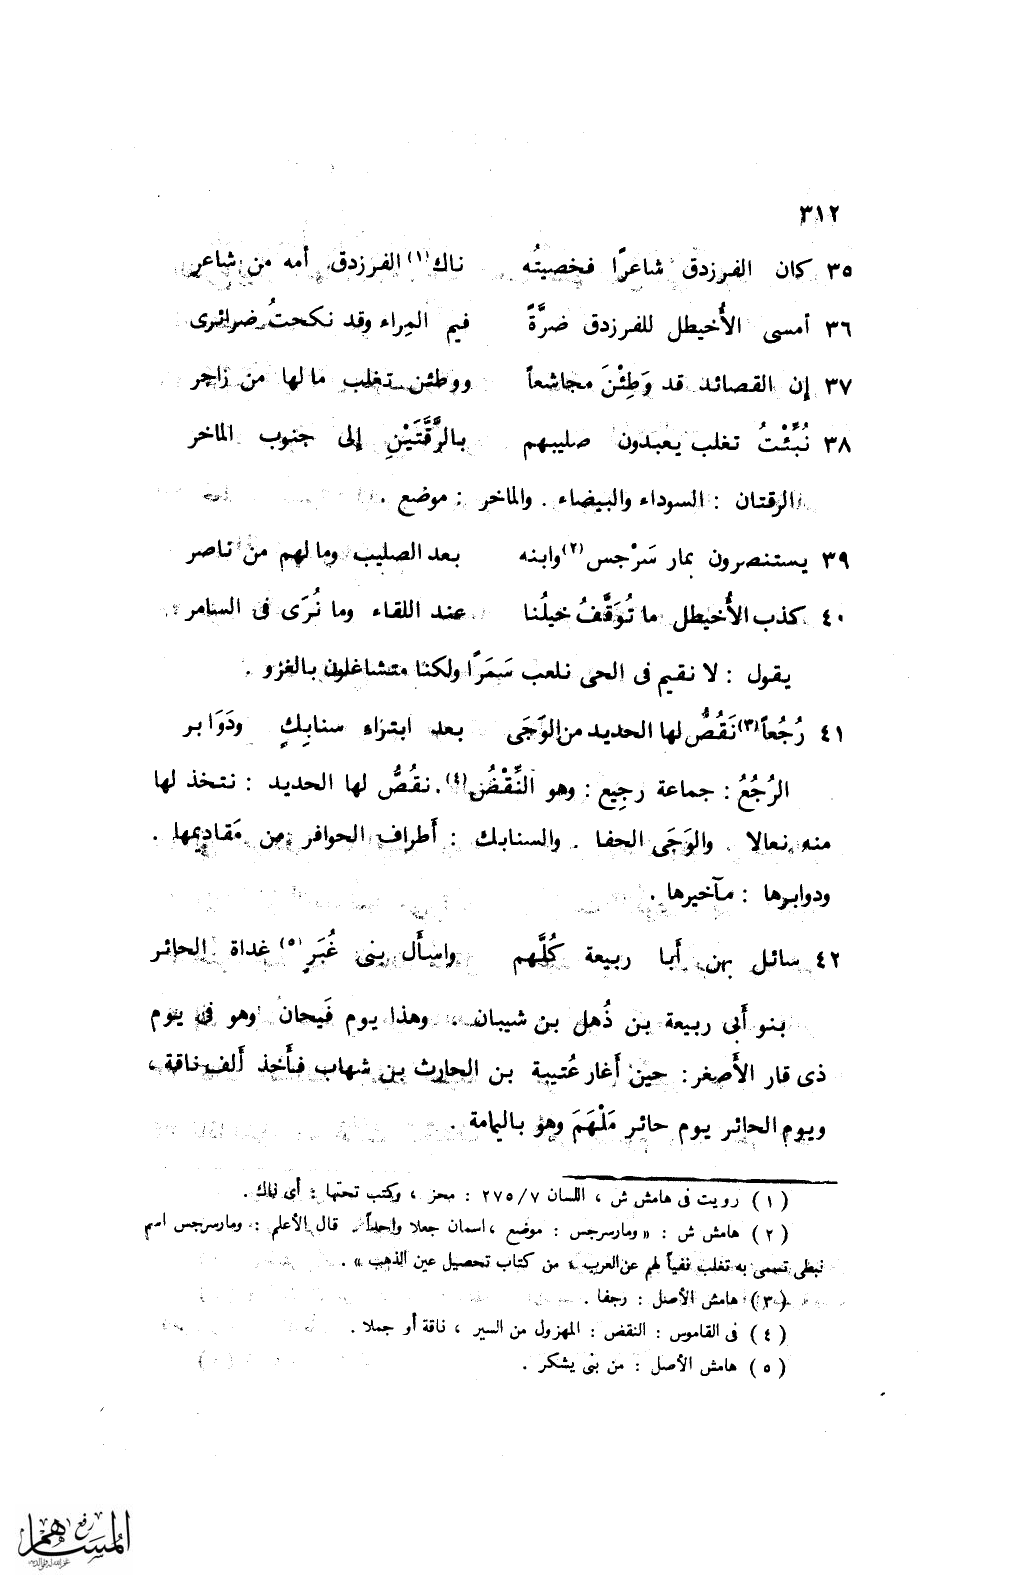 ٣١٢
٣٥ كان الفرزدق شاعرًا فخصيتُه ناك(١) الفرزدق أمه من شاعر
٣٦ أمسى الأُخيطل للفرزدق ضرَّةً فيم المِراء وقد نكحتُ ضرائرى
٣٧ إن القصائد قد وَطِئْنَ مجاشعاً ووطئن تغلب ما لها من زاجر
٣٨ نُبِّئْتُ تغلب يعبدون صليبهم بالرَّقَّتَيْنِ إلى جنوب الماخر
الرقتان : السوداء والبيضاء . والماخر : موضع .
٣٩ يستنصرون بمار سَرْجس(٢) وابنه بعد الصليب وما لهم من ناصر
٤٠ كذب الأُخيطل ما تُوَقَّفُ خيلُنا عند اللقاء وما نُرَى فى السامر
يقول : لا نقيم فى الحى نلعب سَمَرًا ولكنا متشاغلون بالغزو .
٤١ رُجُعاً(٣) نَقُصُّ لها الحديد من الوَجَى بعد ابتراء سنابِكٍ ودَوَابر
الرُجُعُ : جماعة رجيع : وهو النِّقْضُ(٤) . نقُصُّ لها الحديد : نتخذ لها
منه نعالا . والوَجَى الحفا . والسنابك : أطراف الحوافر من مَقاديمها .
ودوابرها : مآخيرها .
٤٢ سائل بهن أَبا ربيعة كُلَّهم واسأَل بنى غُبَرٍ(٥) غداة الحائر
بنو أَبى ربيعة بن ذُهل بن شيبان . وهذا يوم فَيحان وهو فى يوم
ذى قار الأَصغر : حين أَغار عُتيبة بن الحارث بن شهاب فأَخذ أَلف ناقة ،
ويوم الحائر يوم حائر مَلْهَمَ وهو باليمامة .
(١) رويت فى هامش ش ، اللسان ٧/٢٧٥ : محز ، وكتب تحتها : أى ناك .
(٢) هامش ش : « ومارسرجس : موضع ، اسمان جعلا واحداً . قال الأعلم : ومارسرجس اسم
نبطى تسمى به تغلب نفياً لهم عن العرب ، من كتاب تحصيل عين الذهب » .
(٣) هامش الأصل : رجفا .
(٤) فى القاموس : النقض : المهزول من السير ، ناقة أو جملا .
(٥) هامش الأصل : من بنى يشكر .
رفع
المساهم